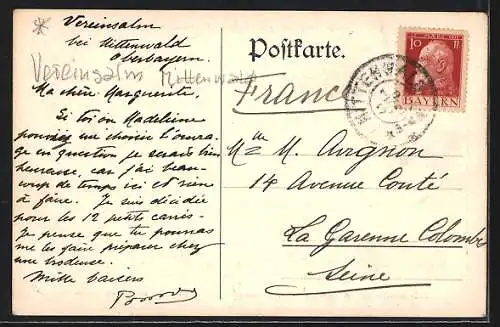 Vereinsalm
bei Mittenwald
Oberbayern.
Vereinsalm Mittenwald
Ma chère Marguerite,
Si toi ou Madeleine
pouviez me choisir l'ouvra-
ge en question je serais bien
heureuse, car j'ai beau-
coup de temps ici et rien
à faire. Je suis décidée
pour les 12 petits carrés.
Je pense que tu pourras
me les faire préparer chez
une brodeuse.
Mille baisers
Postkarte.
France
Mlle M. Avignon
14 Avenue Conté
La Garenne Colombes
Seine
10
BAYERN
MITTENWALD